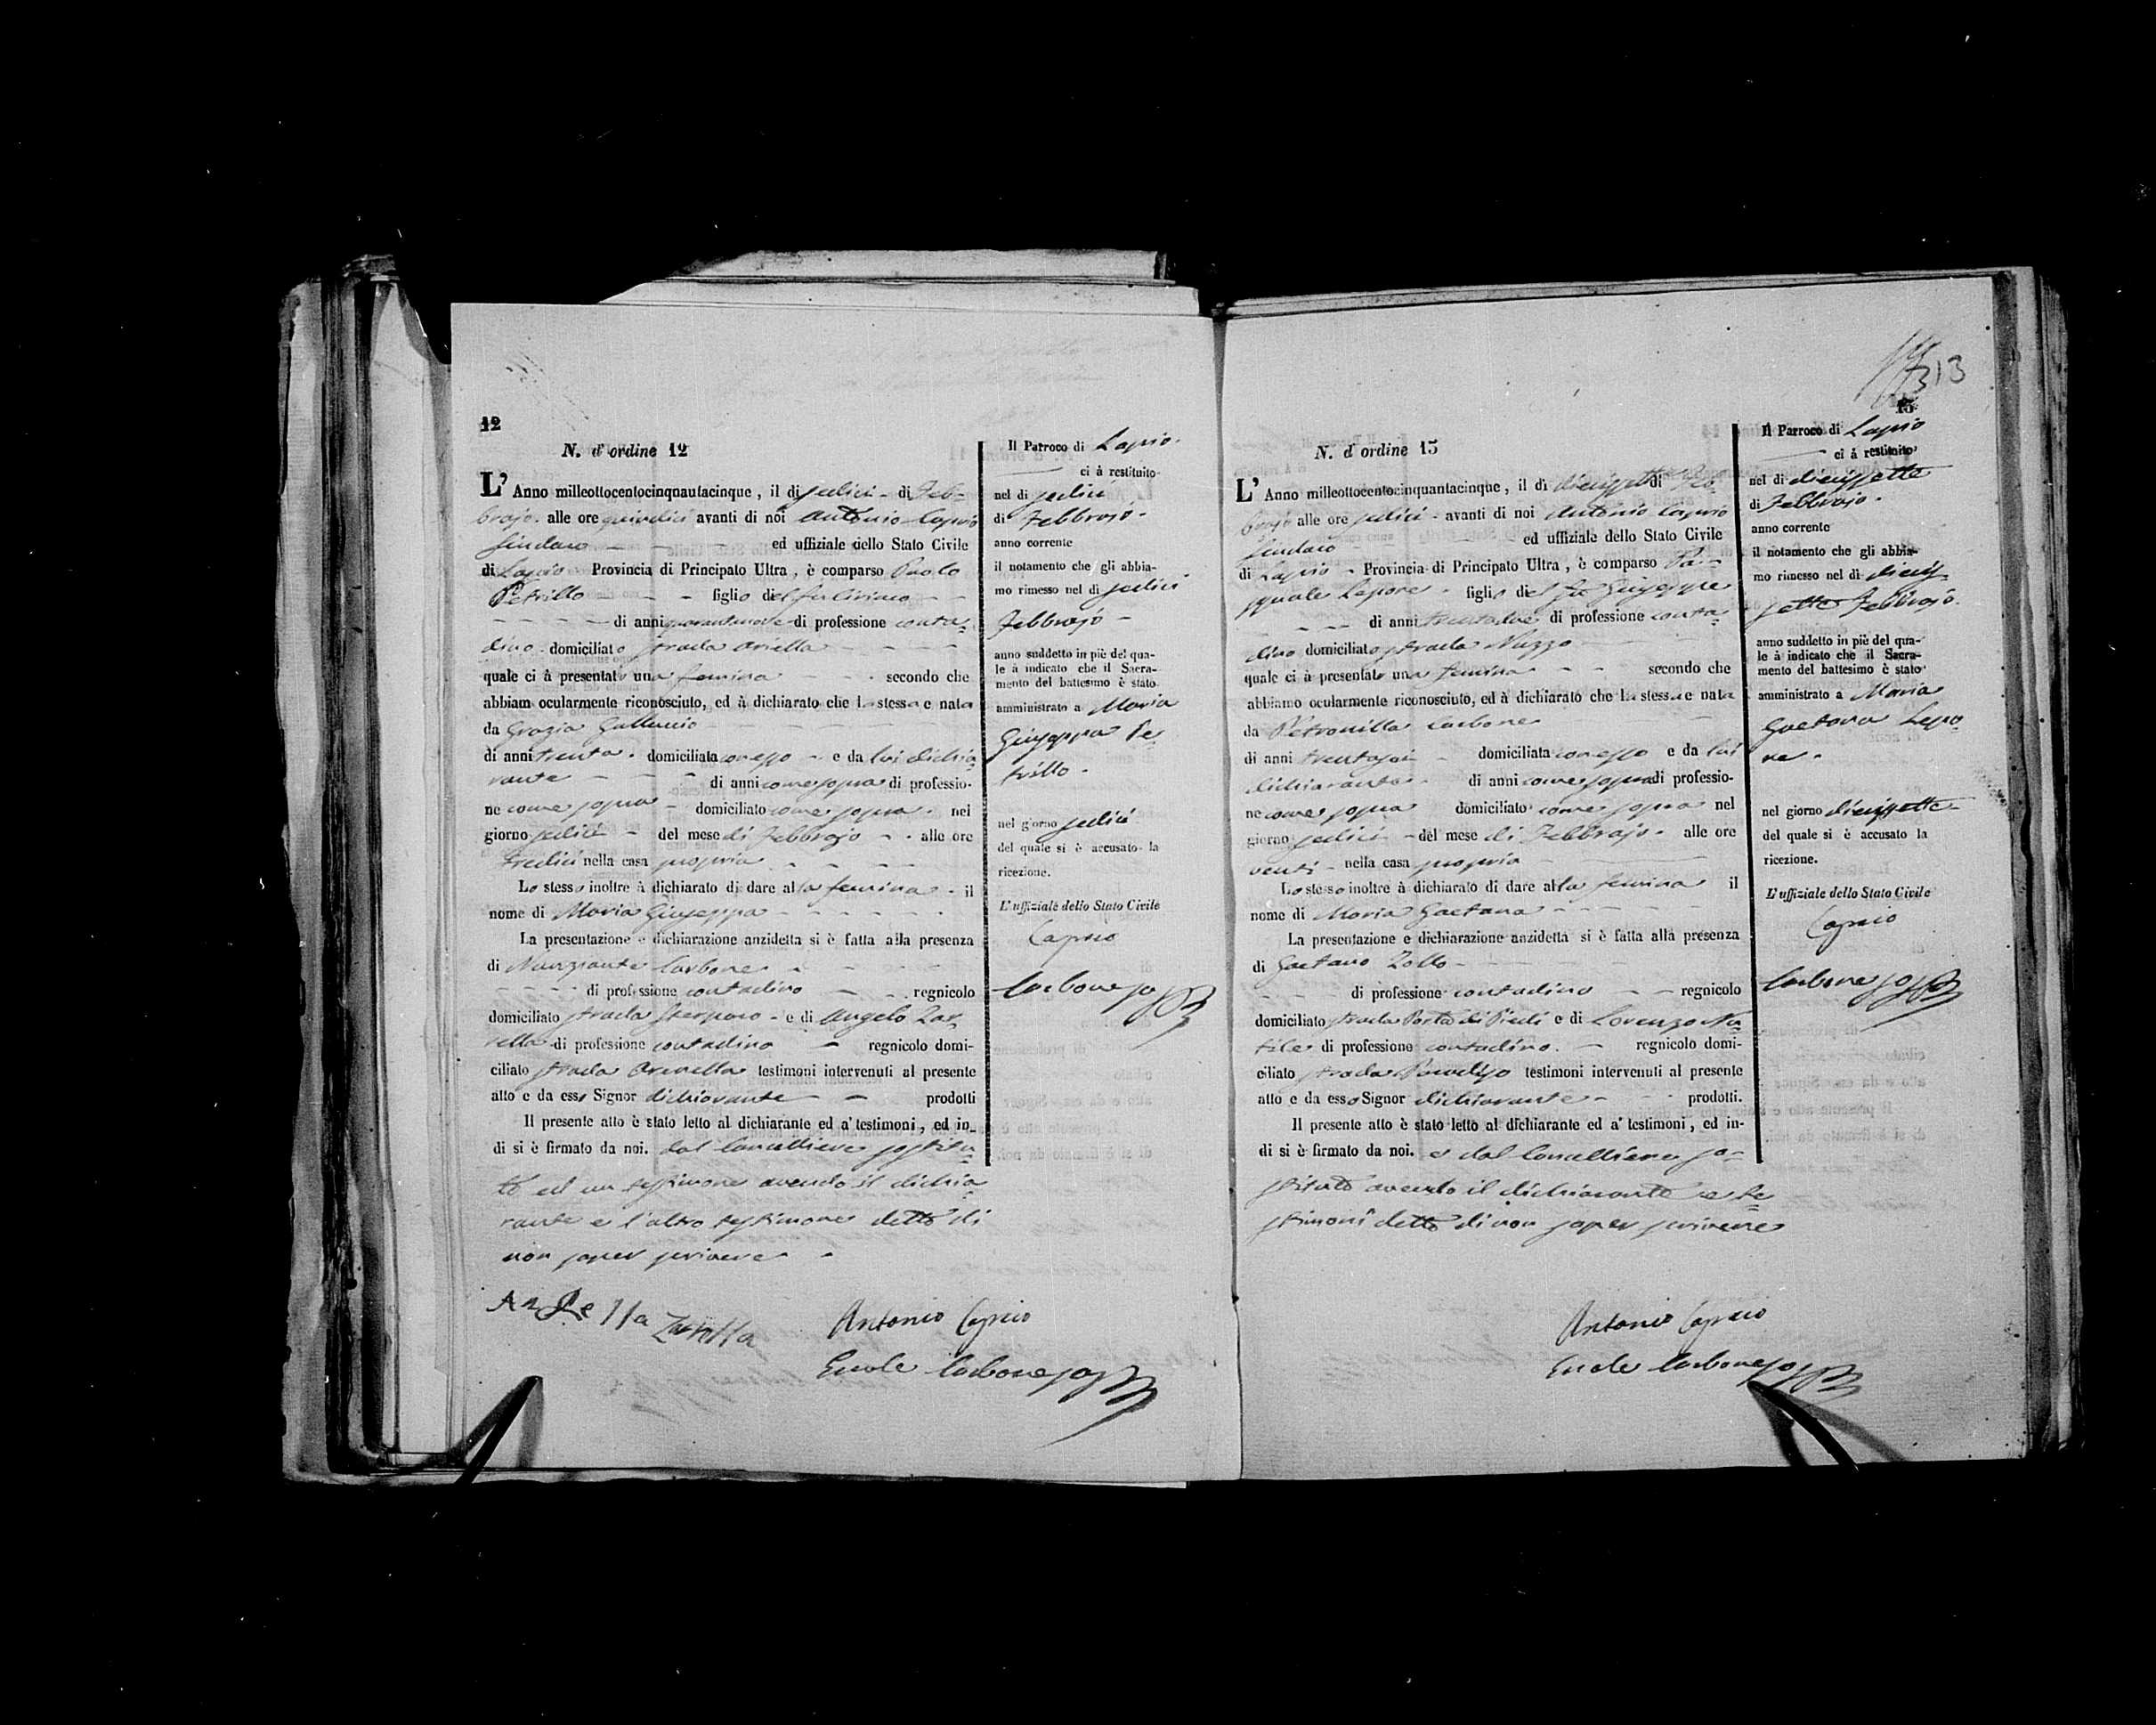 12
N. d' ordine 12
L' Anno milleottocentocinquantacinque, il di sedici - di Feb-
brajo. alle ore quindici avanti di noi Antonio Caprio
Sindaco ed uffiziale dello Stato Civile
di Lapio Provincia di Principato Ultra, è comparso Paolo
Petrillo figlio del fu Ciriaco
di anni quarantanove di professione conta-
dino domiciliato strada Ariella
quale ci à presentato una femina secondo che
abbiam ocularmente riconosciuto, ed à dichiarato che la stessa e nata
da Grazia Galluccio
di anni trenta. domiciliata con esso e da lui dichia-
rante di anni come sopra di professio-
ne come sopra domiciliato come sopra. nel
giorno sedici del mese di Febbrajo alle ore
tredici nella casa propria
Lo stesso inoltre à dichiarato di dare alla femina il
nome di Maria Giuseppa
La presentazione e dichiarazione anzidetta si è fatta alla presenza
di Nunziante Carbone
di professione contadino regnicolo
domiciliato strada e di Angelo Zar-
rella di professione contadino regnicolo domi-
ciliato strada testimoni intervenuti al presente
atto e da esso Signor dichiarante prodotti
Il presente atto è stato letto al dichiarante ed a' testimoni, ed in-
di si è firmato da noi. dal Cancelliere sostitu-
to ed un testimone avendo il dichia-
rante e l'altro testimone detto di
non saper scrivere
Zarrella
Antonio Caprio
Ercole Carbone sosto
Il Parroco di Lapio.
ci à restituito
nel di sedici
di Febbrajo.
anno corrente
il notamento che gli abbia-
mo rimesso nel di sedici
Febbrajo
anno suddetto in piè del qua-
le à indicato che il Sacra-
mento del battesimo è stato
amministrato a Maria
Giuseppa Pe-
trillo.
nel giorno sedici
del quale si è accusato la
ricezione.
L'uffiziale dello Stato Civile
Caprio
Carbone sosto
13
15
N. d ordine 15
L' Anno milleottocentocinquantacinque, il di diecissette di Feb-
brajo alle ore sedici avanti di noi Antonio Caprio
Sindaco ed uffiziale dello Stato Civile
di Lapio Provincia di Principato Ultra, è comparso Pa-
squale Lepore figlio del fu Giuseppe
di anni trentadue di professione conta-
dino domiciliato strada Nuzzo
quale ci à presentato una femina secondo che
abbiamo ocularmente riconosciuto, ed à dichiarato che la stessa e nata
da Petronilla Carbone
di anni trentasei domiciliata con esso e da lui
dichiarante di anni come sopra di professio-
ne come sopra domiciliato come sopra nel
giorno sedici del mese di Febbrajo. alle ore
venti nella casa propria
Lo stesso inoltre à dichiarato di dare alla femina il
nome di Maria Gaetana
La presentazione e dichiarazione anzidetta si è fatta alla presenza
di Gaetano Zollo
di professione contadino regnicolo
domiciliato strada Porta di Piedi e di Lorenzo Na-
tile di professione contadino. regnicolo domi-
ciliato strada testimoni intervenuti al presente
atto e da esso Signor dichiarante prodotti.
Il presente atto è stato letto al dichiarante ed a' testimoni, ed in-
di si è firmato da noi. e dal Cancelliere so-
stituto avendo il dichiarante e te-
stimoni detto di non saper scrivere
Antonio Caprio
Ercole Carbone sosto
Il Parroco di Lapio
ci à restituito
nel di diecissette
di Febbrajo.
anno corrente
il notamento che gli abbia-
mo rimesso nel di diecis-
sette Febbrajo.
anno suddetto in piè del qua-
le à indicato che il Sacra-
mento del battesimo è stato
amministrato a Maria
Gaetana Lepo-
re.
nel giorno diecissette
del quale si è accusato la
ricezione.
L'uffiziale dello Stato Civile
Caprio
Carbone sosto